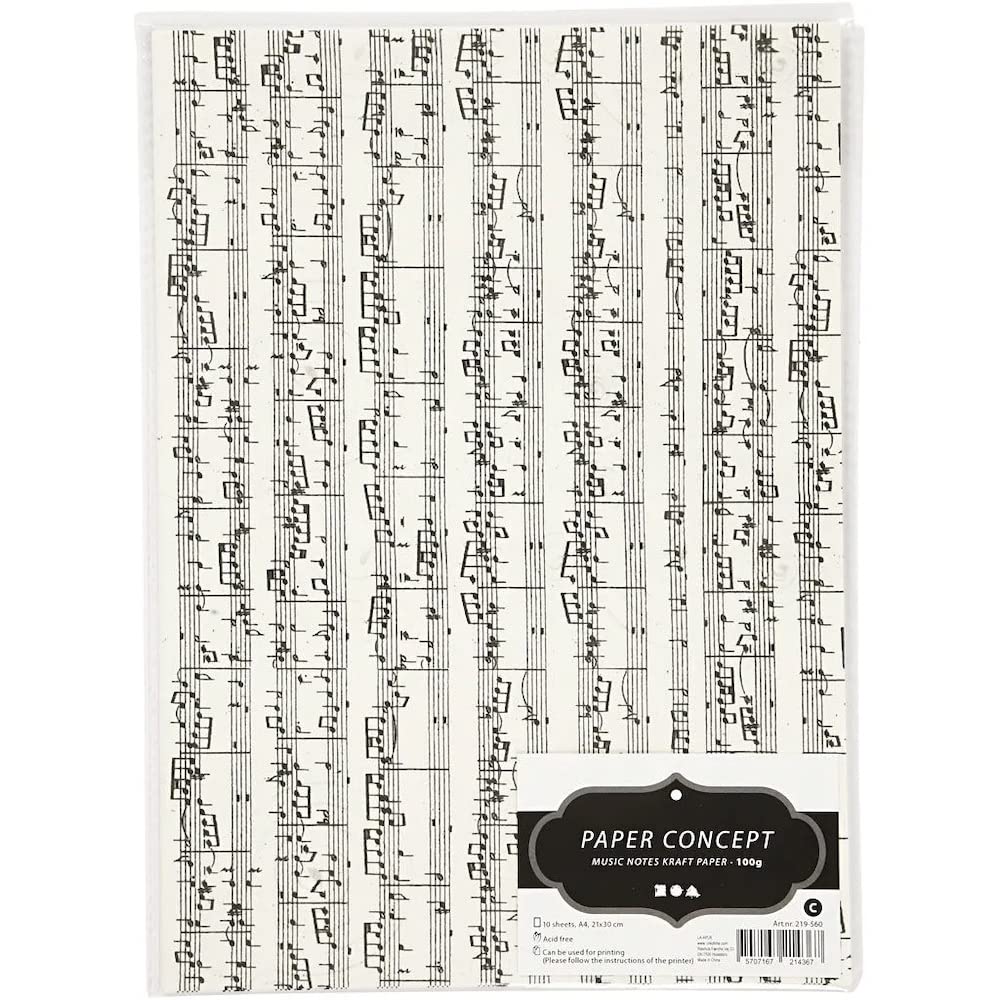 PAPER CONCEPT
MUSIC NOTES KRAFT PAPER - 100g
C
10 sheets, A4, 21x30 cm
Art.nr. 219-560
Acid free
Can be used for printing
(Please follow the instructions of the printer)
Made in China
5707167 214367